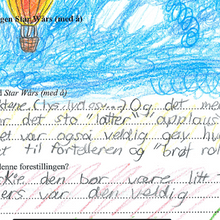 gen Star Wars (med å)
d Star Wars (med å)
dene (lys, lyd osv...) Og det me
r det sto "latter" "applaus
et var også veldig gøy hv
t til fortelleren og "brøt rol
denne forestillingen?
kke den bør være litt
ers var den veldig